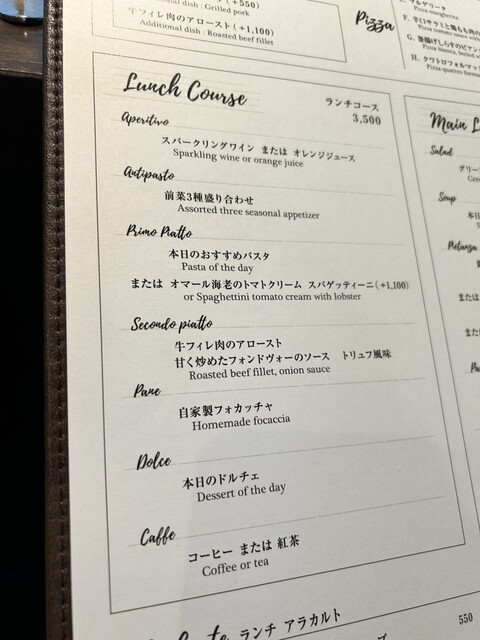 (+550)
Additional dish : Grilled pork
牛フィレ肉のアロースト(+1,100)
Additional dish : Roasted beef fillet
Pizza
マルゲリータ
Pizza margherita
F. 辛口サラミと鶏もも肉の
Pizza tomato sauce with
G. 釜揚げしらすのビアン
Pizza bianca, boiled w
H. クワトロフォルマッ
Pizza quattro forma
Lunch Course
ランチコース
3,500
Aperitivo
スパークリングワイン または オレンジジュース
Sparkling wine or orange juice
Antipasto
前菜3種盛り合わせ
Assorted three seasonal appetizer
Primo Piatto
本日のおすすめパスタ
Pasta of the day
または オマール海老のトマトクリーム スパゲッティーニ(+1,100)
or Spaghettini tomato cream with lobster
Secondo piatto
牛フィレ肉のアロースト
甘く炒めたフォンドヴォーのソース トリュフ風味
Roasted beef fillet, onion sauce
Pane
自家製フォカッチャ
Homemade focaccia
Dolce
本日のドルチェ
Dessert of the day
Caffe
コーヒー または 紅茶
Coffee or tea
Main L
Salad
グリー
Gre
Soup
本日
S
Pietanza
または
または
Pa
ランチ アラカルト
550